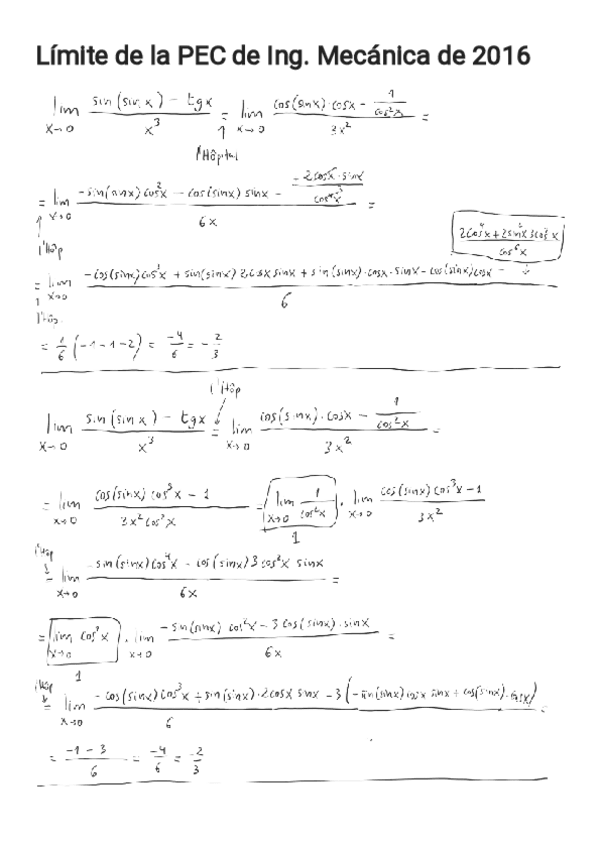 Límite de la PEC de Ing. Mecánica de 2016
lim x→0 (sin(sin x) − tg x)/x³ = lim x→0 (cos(sin x)·cos x − 1/cos²x)/3x² =
l'Hôpital
= lim x→0 (−sin(sin x) cos²x − cos(sin x) sin x − (−2cos x·sin x)/cos⁴x)/6x =
l'Hôp
(2cos⁴x + 2sin²x 3cos²x)/cos⁶x
= lim x→0 (−cos(sin x) cos³x + sin(sin x) 2cos x sin x + sin(sin x)·cos x·sin x − cos(sin x) cos x − ↓)/6
l'Hôp
= 1/6 (−1−1−2) = −4/6 = −2/3
l'Hôp
lim x→0 (sin(sin x) − tg x)/x³ = lim x→0 (cos(sin x)·cos x − 1/cos²x)/3x² =
= lim x→0 (cos(sin x) cos³x − 1)/3x²cos²x = lim x→0 1/cos²x · lim x→0 (cos(sin x) cos³x − 1)/3x²
1
l'Hôp
= lim x→0 (−sin(sin x) cos⁴x − cos(sin x) 3cos²x sin x)/6x =
= lim x→0 cos²x · lim x→0 (−sin(sin x) cos²x − 3cos(sin x)·sin x)/6x =
1
l'Hôp
= lim x→0 (−cos(sin x) cos³x + sin(sin x)·2cos x sin x − 3(−sin(sin x) cos x sin x + cos(sin x)·cos x))/6 =
= (−1−3)/6 = −4/6 = −2/3